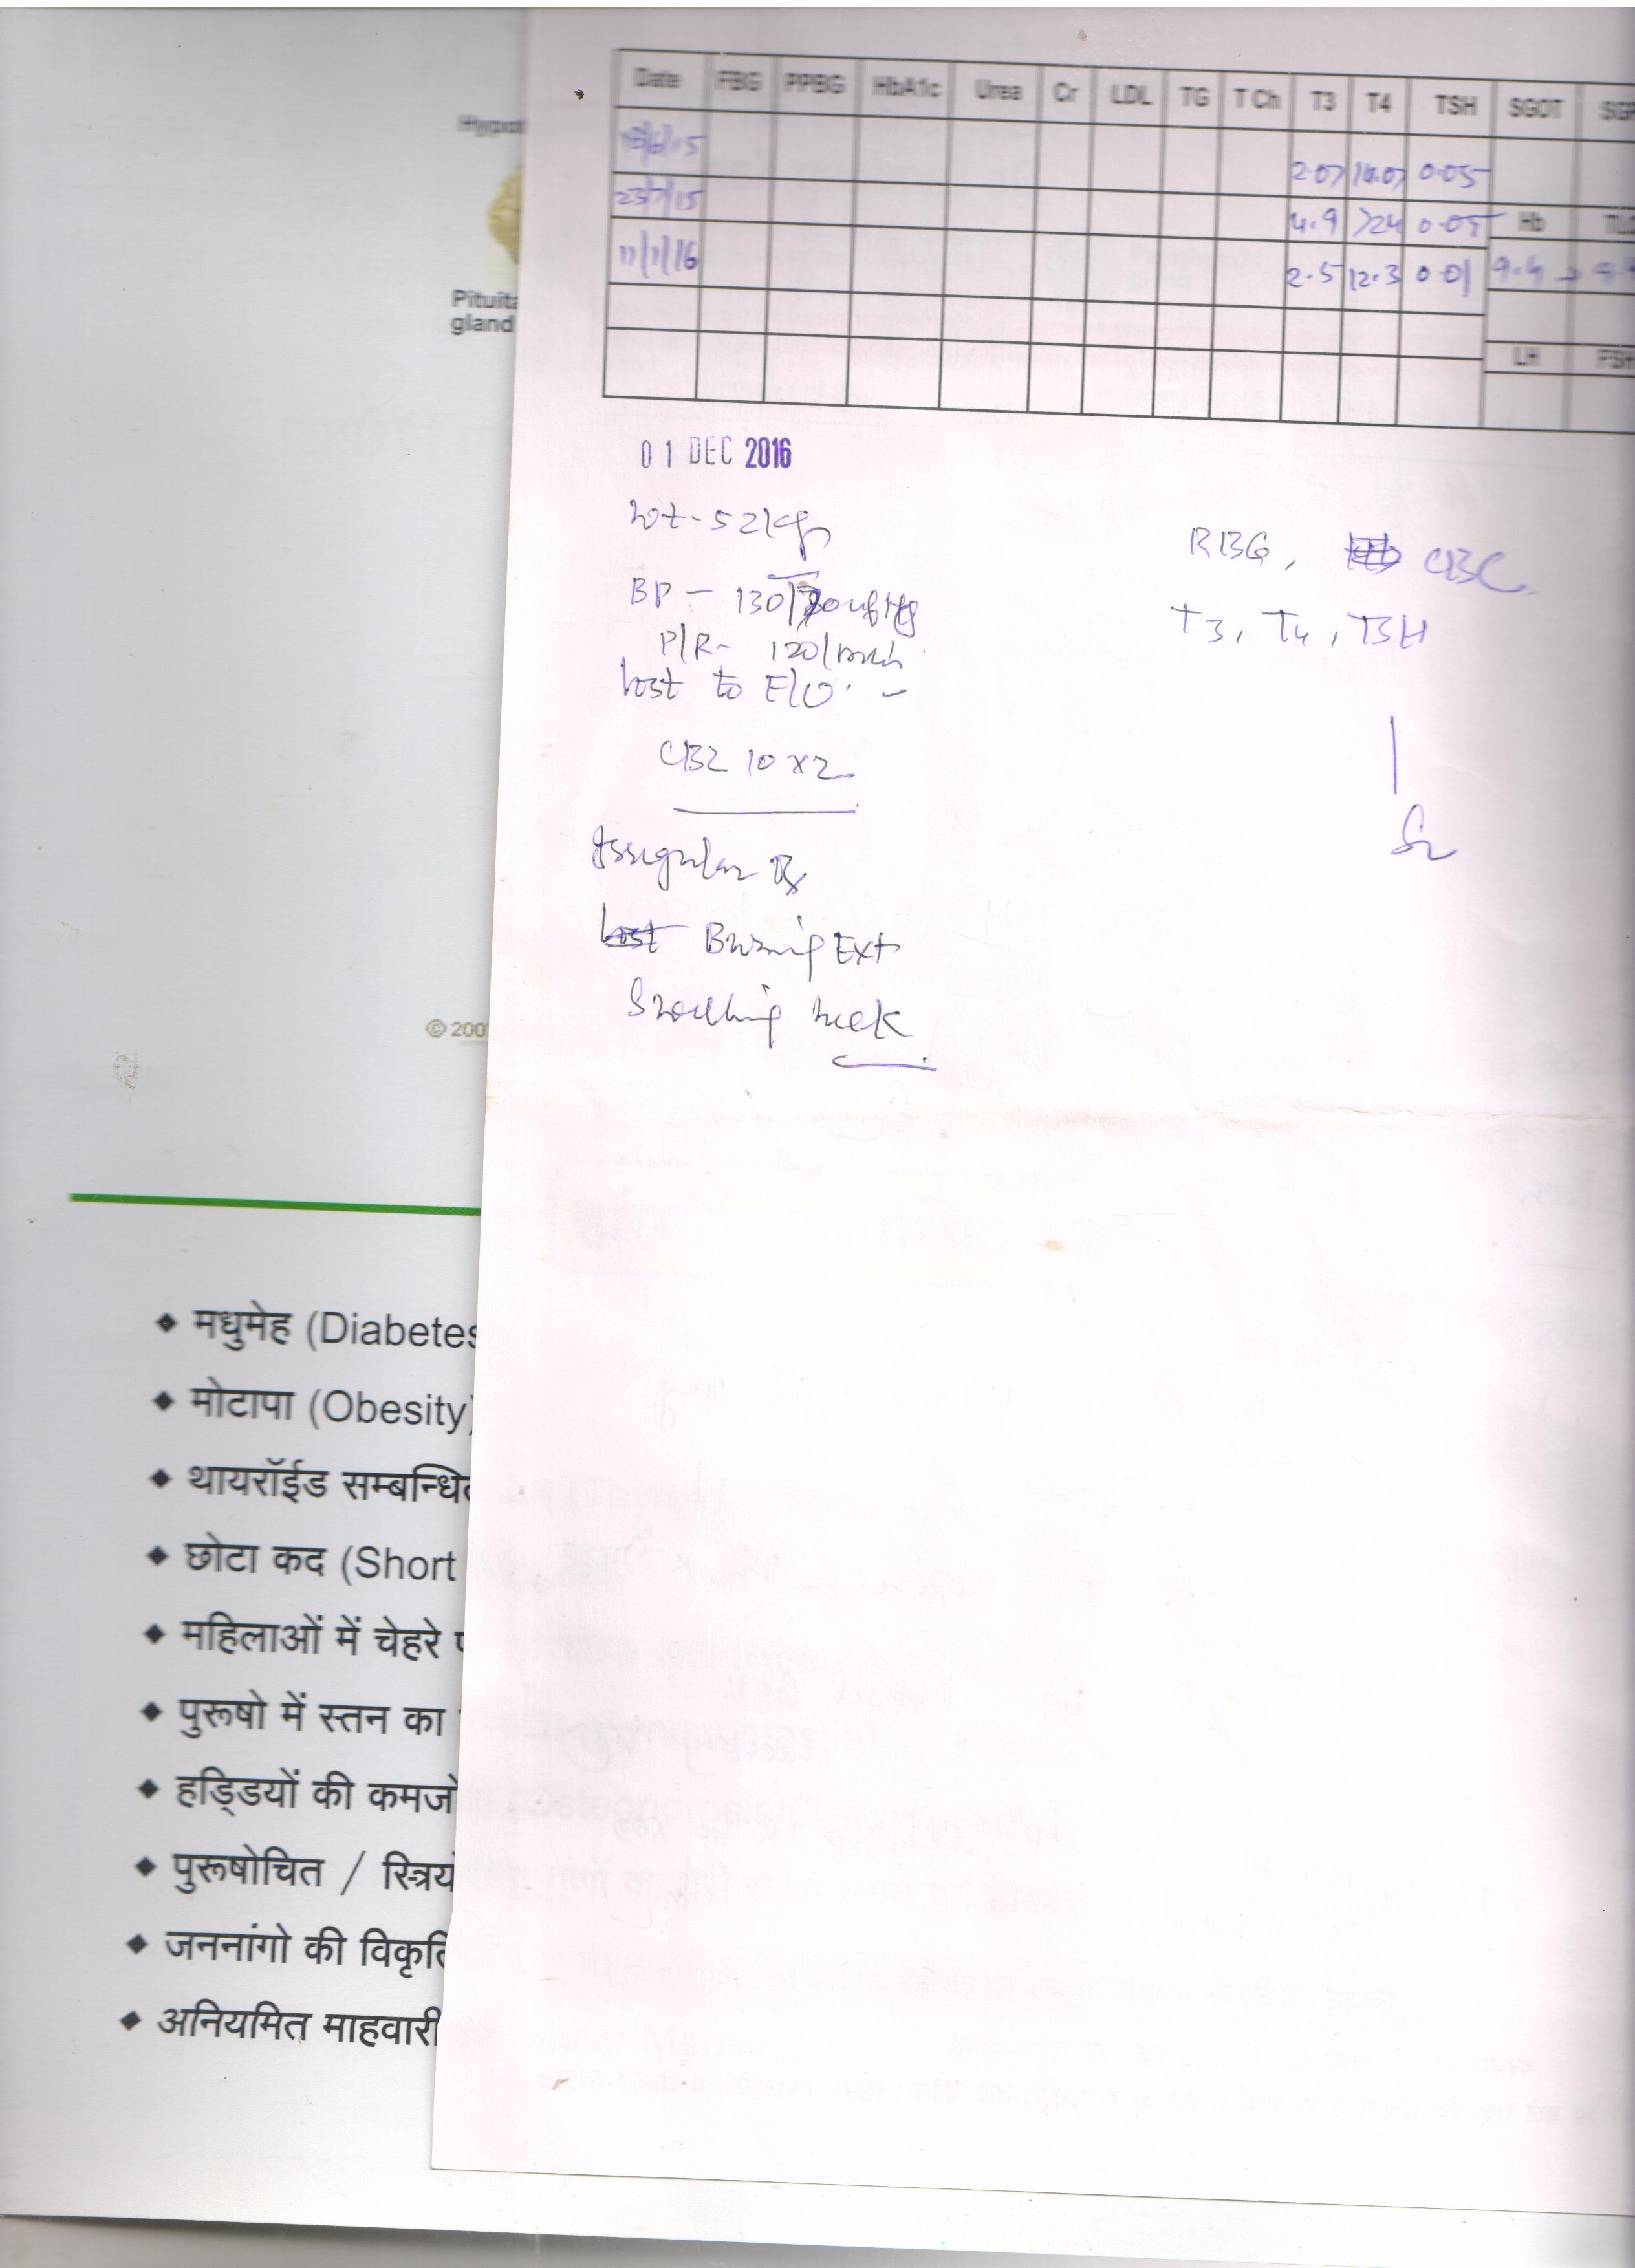 Date FBG PPBG HbA1c Urea Cr LDL TG T Ch T3 T4 TSH SGOT
/6/15 2.07 14.07 0.05
23/7/15 4.9 >24 0.05 Hb
11/1/16 2.5 12.3 0.01 9.4
LH FSH
01 DEC 2016
Wt - 52 kg
BP - 130/ mmHg
P/R - 120/min
lost to F/U. -
CBZ 10 x 2
Irregular Rx
Burning Ext
Swelling neck
RBG, CBC
T3, T4, TSH
Pituita
gland
© 200
◆ मधुमेह (Diabetes
◆ मोटापा (Obesity)
◆ थायरॉईड सम्बन्धित
◆ छोटा कद (Short
◆ महिलाओं में चेहरे
◆ पुरूषो में स्तन का
◆ हड्डियों की कमजो
◆ पुरूषोचित / स्त्रियो
◆ जननांगो की विकृति
◆ अनियमित माहवारी